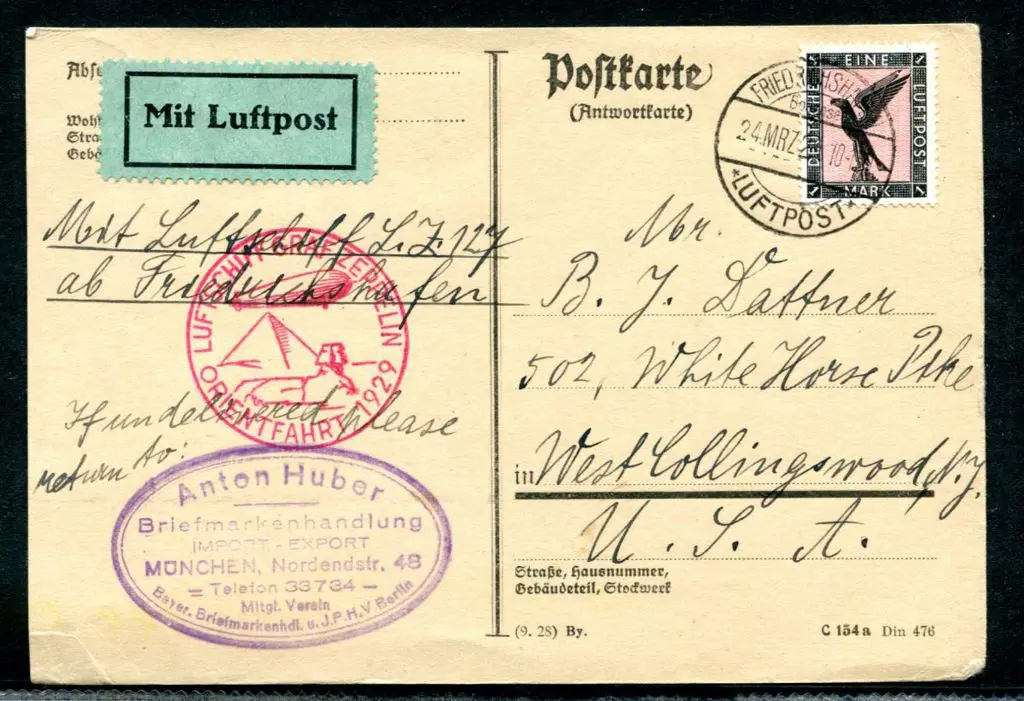 Postkarte
(Antwortkarte)
Abſe
Wohn
Stra
Gebä
Mit Luftpost
EINE
DEUTSCHE
LUFTPOST
1 MARK 1
FRIEDRICHSHA
24.MRZ
10-
*LUFTPOST*
Mit Luftschiff L.Z. 127
ab Friedrichshafen
LUFTSCHIFF GRAF ZEPPELIN
ORIENTFAHRT 1929
If undelivered please
return to:
Anton Huber
Briefmarkenhandlung
IMPORT - EXPORT
MÜNCHEN, Nordendstr. 48
= Telefon 33734 —
Mitgl. Verein
Bayer. Briefmarkenhdl. u. J.P.H.V Berlin
Mr.
B. J. Dattner
502, White Horse Pike
in West Collingswood, N.J.
U. S. A.
Straße, Hausnummer,
Gebäudeteil, Stockwerk
(9. 28) By.
C 154a Din 476